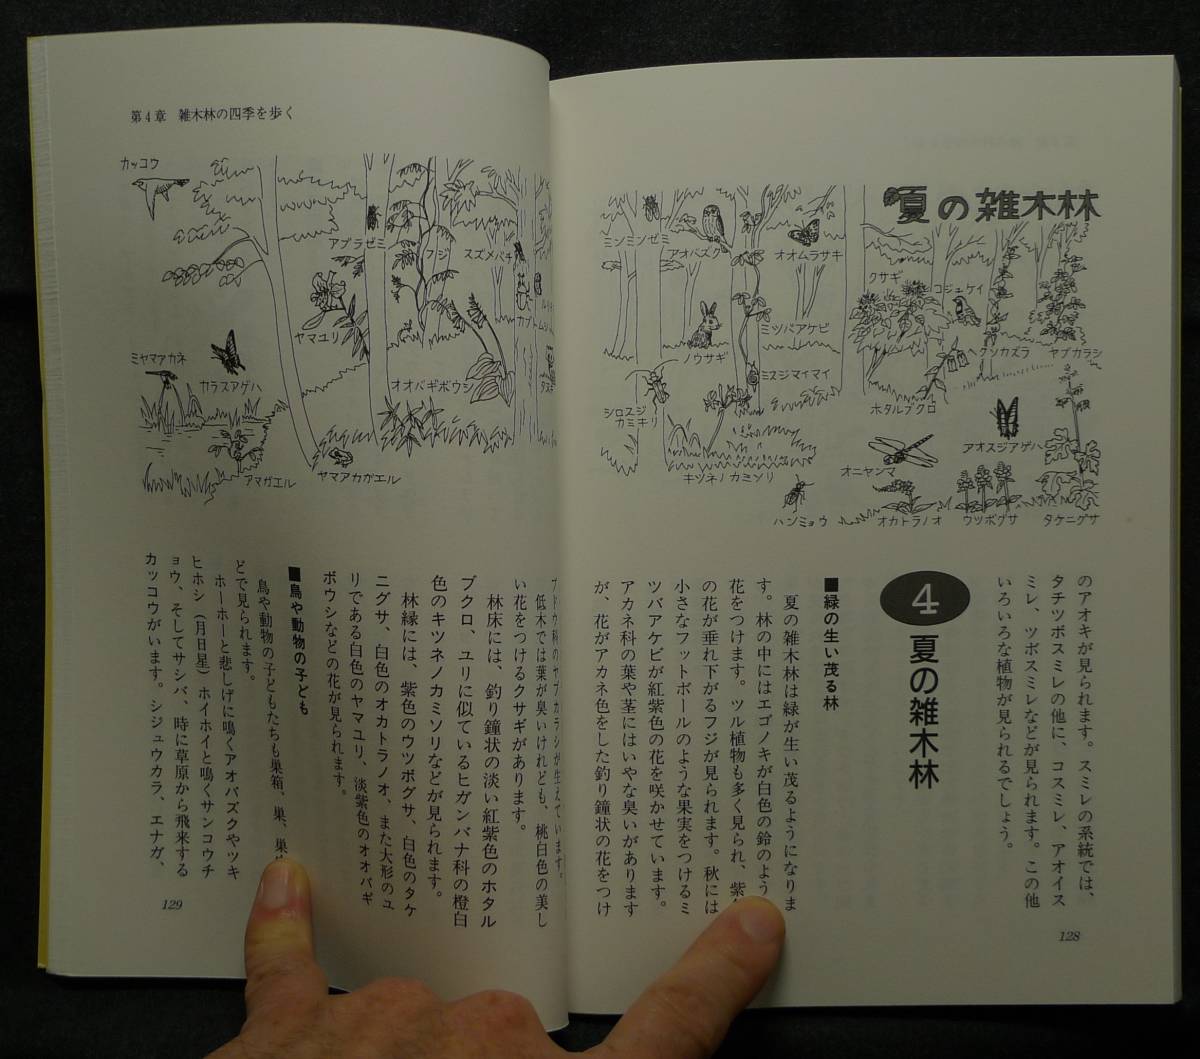 夏の雑木林
ミンミンゼミ
アオバズク
オオムラサキ
クサギ
コジュケイ
ミツバアケビ
ノウサギ
ヘクソカズラ
ヤブカラシ
ミスジマイマイ
シロスジ
カミキリ
ホタルブクロ
アオスジアゲハ
オニヤンマ
キツネノカミソリ
ハンミョウ
オカトラノオ
ウツボグサ
タケニグサ
のアオキが見られます。スミレの系統では、
タチツボスミレの他に、コスミレ、アオイス
ミレ、ツボスミレなどが見られます。この他
いろいろな植物が見られるでしょう。
4 夏の雑木林
■緑の生い茂る林
夏の雑木林は緑が生い茂るようになりま
す。林の中にはエゴノキが白色の鈴のよう
花をつけます。ツル植物も多く見られ、紫
の花が垂れ下がるフジが見られます。秋には
小さなフットボールのような果実をつけるミ
ツバアケビが紅紫色の花を咲かせています。
アカネ科の葉や茎にはいやな臭いがあります
が、花がアカネ色をした釣り鐘状の花をつけ
128
第4章 雑木林の四季を歩く
カッコウ
アブラゼミ
フジ
スズメバチ
カブトムシ
ヤマユリ
ミヤマアカネ
カラスアゲハ
オオバギボウシ
アマガエル
ヤマアカガエル
ブドウ科のヤブカラシが生えています。
低木では葉が臭いけれども、桃白色の美し
い花をつけるクサギがあります。
林床には、釣り鐘状の淡い紅紫色のホタル
ブクロ、ユリに似ているヒガンバナ科の橙白
色のキツネノカミソリなどが見られます。
林縁には、紫色のウツボグサ、白色のタケ
ニグサ、白色のオカトラノオ、また大形のユ
リである白色のヤマユリ、淡紫色のオオバギ
ボウシなどの花が見られます。
■鳥や動物の子ども
鳥や動物の子どもたちも巣箱、巣、
どで見られます。
ホーホーと悲しげに鳴くアオバズクやツキ
ヒホシ（月日星）ホイホイと鳴くサンコウチ
ョウ、そしてサシバ、時に草原から飛来する
カッコウがいます。シジュウカラ、エナガ、
129